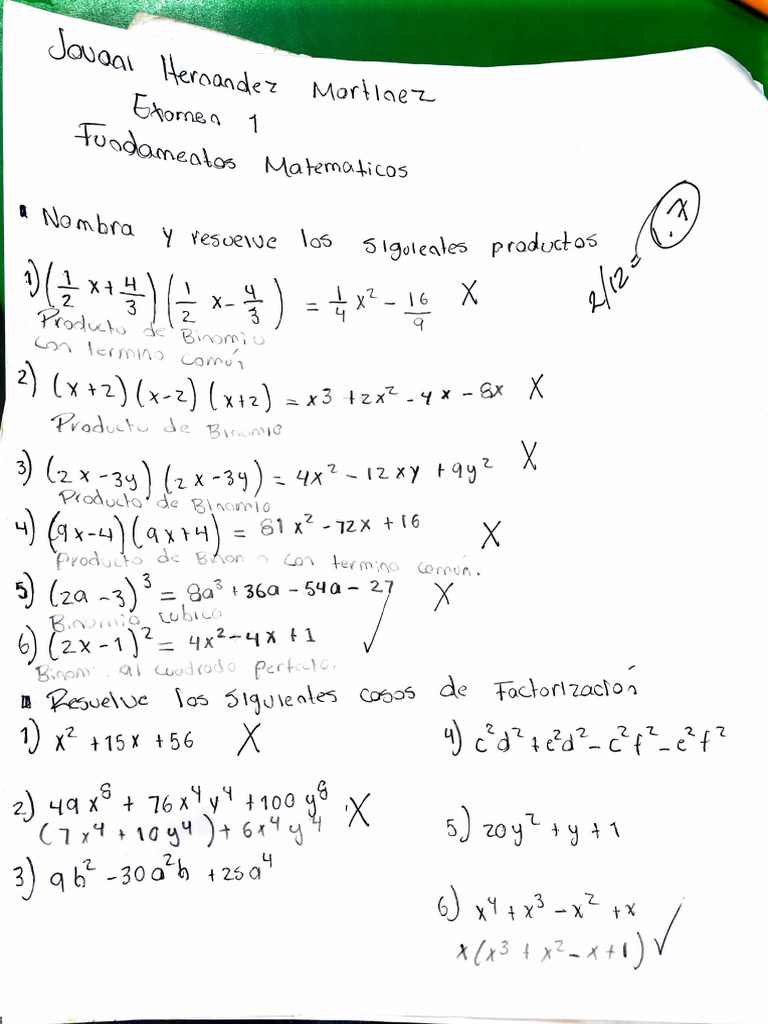 Jovani Hernandez Martinez
Examen 1
Fundamentos Matematicos
Nombra y resuelve los siguientes productos
2/12 = 1.7
1) (1/2 x + 4/3) (1/2 x - 4/3) = 1/4 x² - 16/9 X
Producto de Binomio
con termino común
2) (x+2) (x-2) (x+2) = x3 +2x² - 4x - 8x X
Producto de Binomio
3) (2x-3y) (2x-3y) = 4x² - 12xy + 9y² X
Producto de Binomio
4) (9x-4) (9x+4) = 81x² - 72x + 16 X
Producto de Binomio con termino común.
5) (2a-3)³ = 8a³ + 36a - 54a - 27 X
Binomio cubico
6) (2x-1)² = 4x² - 4x + 1 ✓
Binomi al cuadrado perfecto.
Resuelve los siguientes casos de Factorización
1) x² + 15x + 56 X
2) 49x⁸ + 76x⁴y⁴ + 100y⁸ X
(7x⁴ + 10y⁴) + 6x⁴y⁴
3) 9b² - 30a²b + 25a⁴
4) c²d² + e²d² - c²f² - e²f²
5) 20y² + y + 1
6) x⁴ + x³ - x² + x
x(x³ + x² - x + 1) ✓